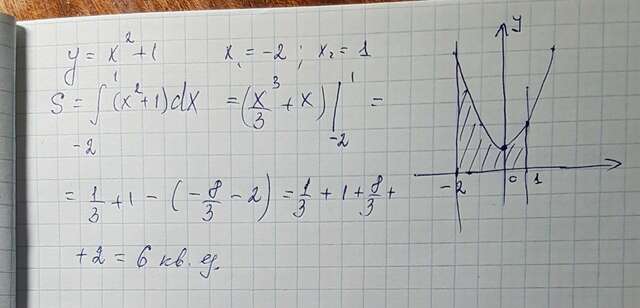 y = x² + 1    x₁ = -2 ; x₂ = 1
S = ∫₋₂¹ (x² + 1) dx = (x³/3 + x) |₋₂¹ =
= 1/3 + 1 - (-8/3 - 2) = 1/3 + 1 + 8/3 +
+ 2 = 6 кв. ед.
y
-2 0 1